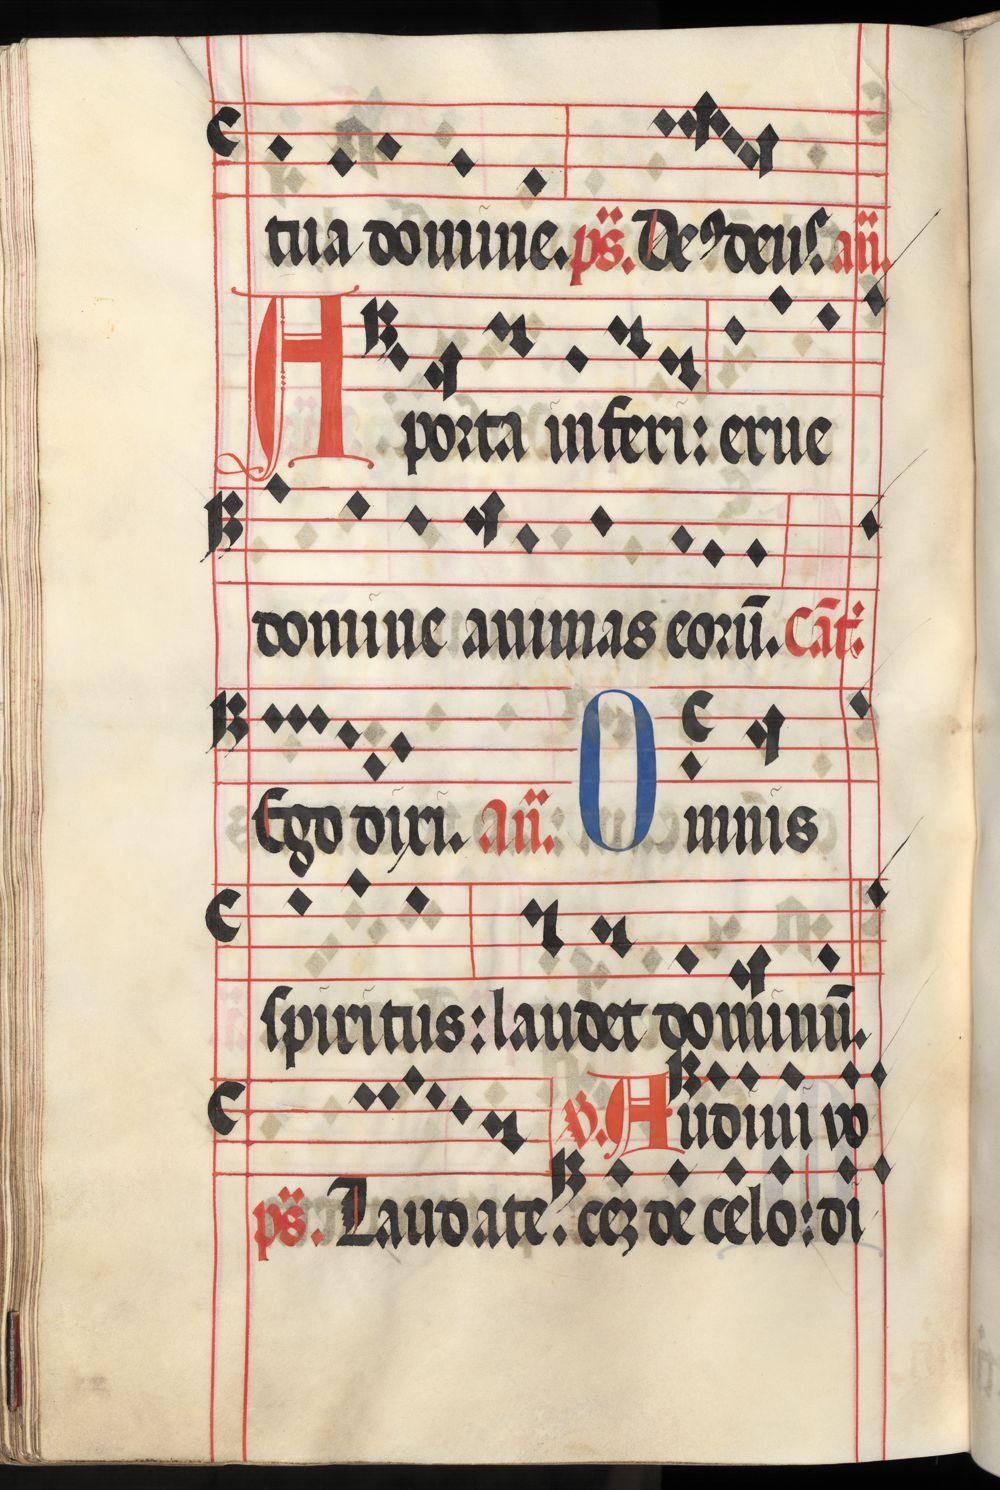 tua domine. p̄s. Deꝰ deus. añ.
A porta inferi: erue
domine animas eorū. Cāt.
Ego dixi. Añ. Omnis
spiritus: laudet dominū.
℣. Audiui vo
p̄s. Laudate. cez de celo: di